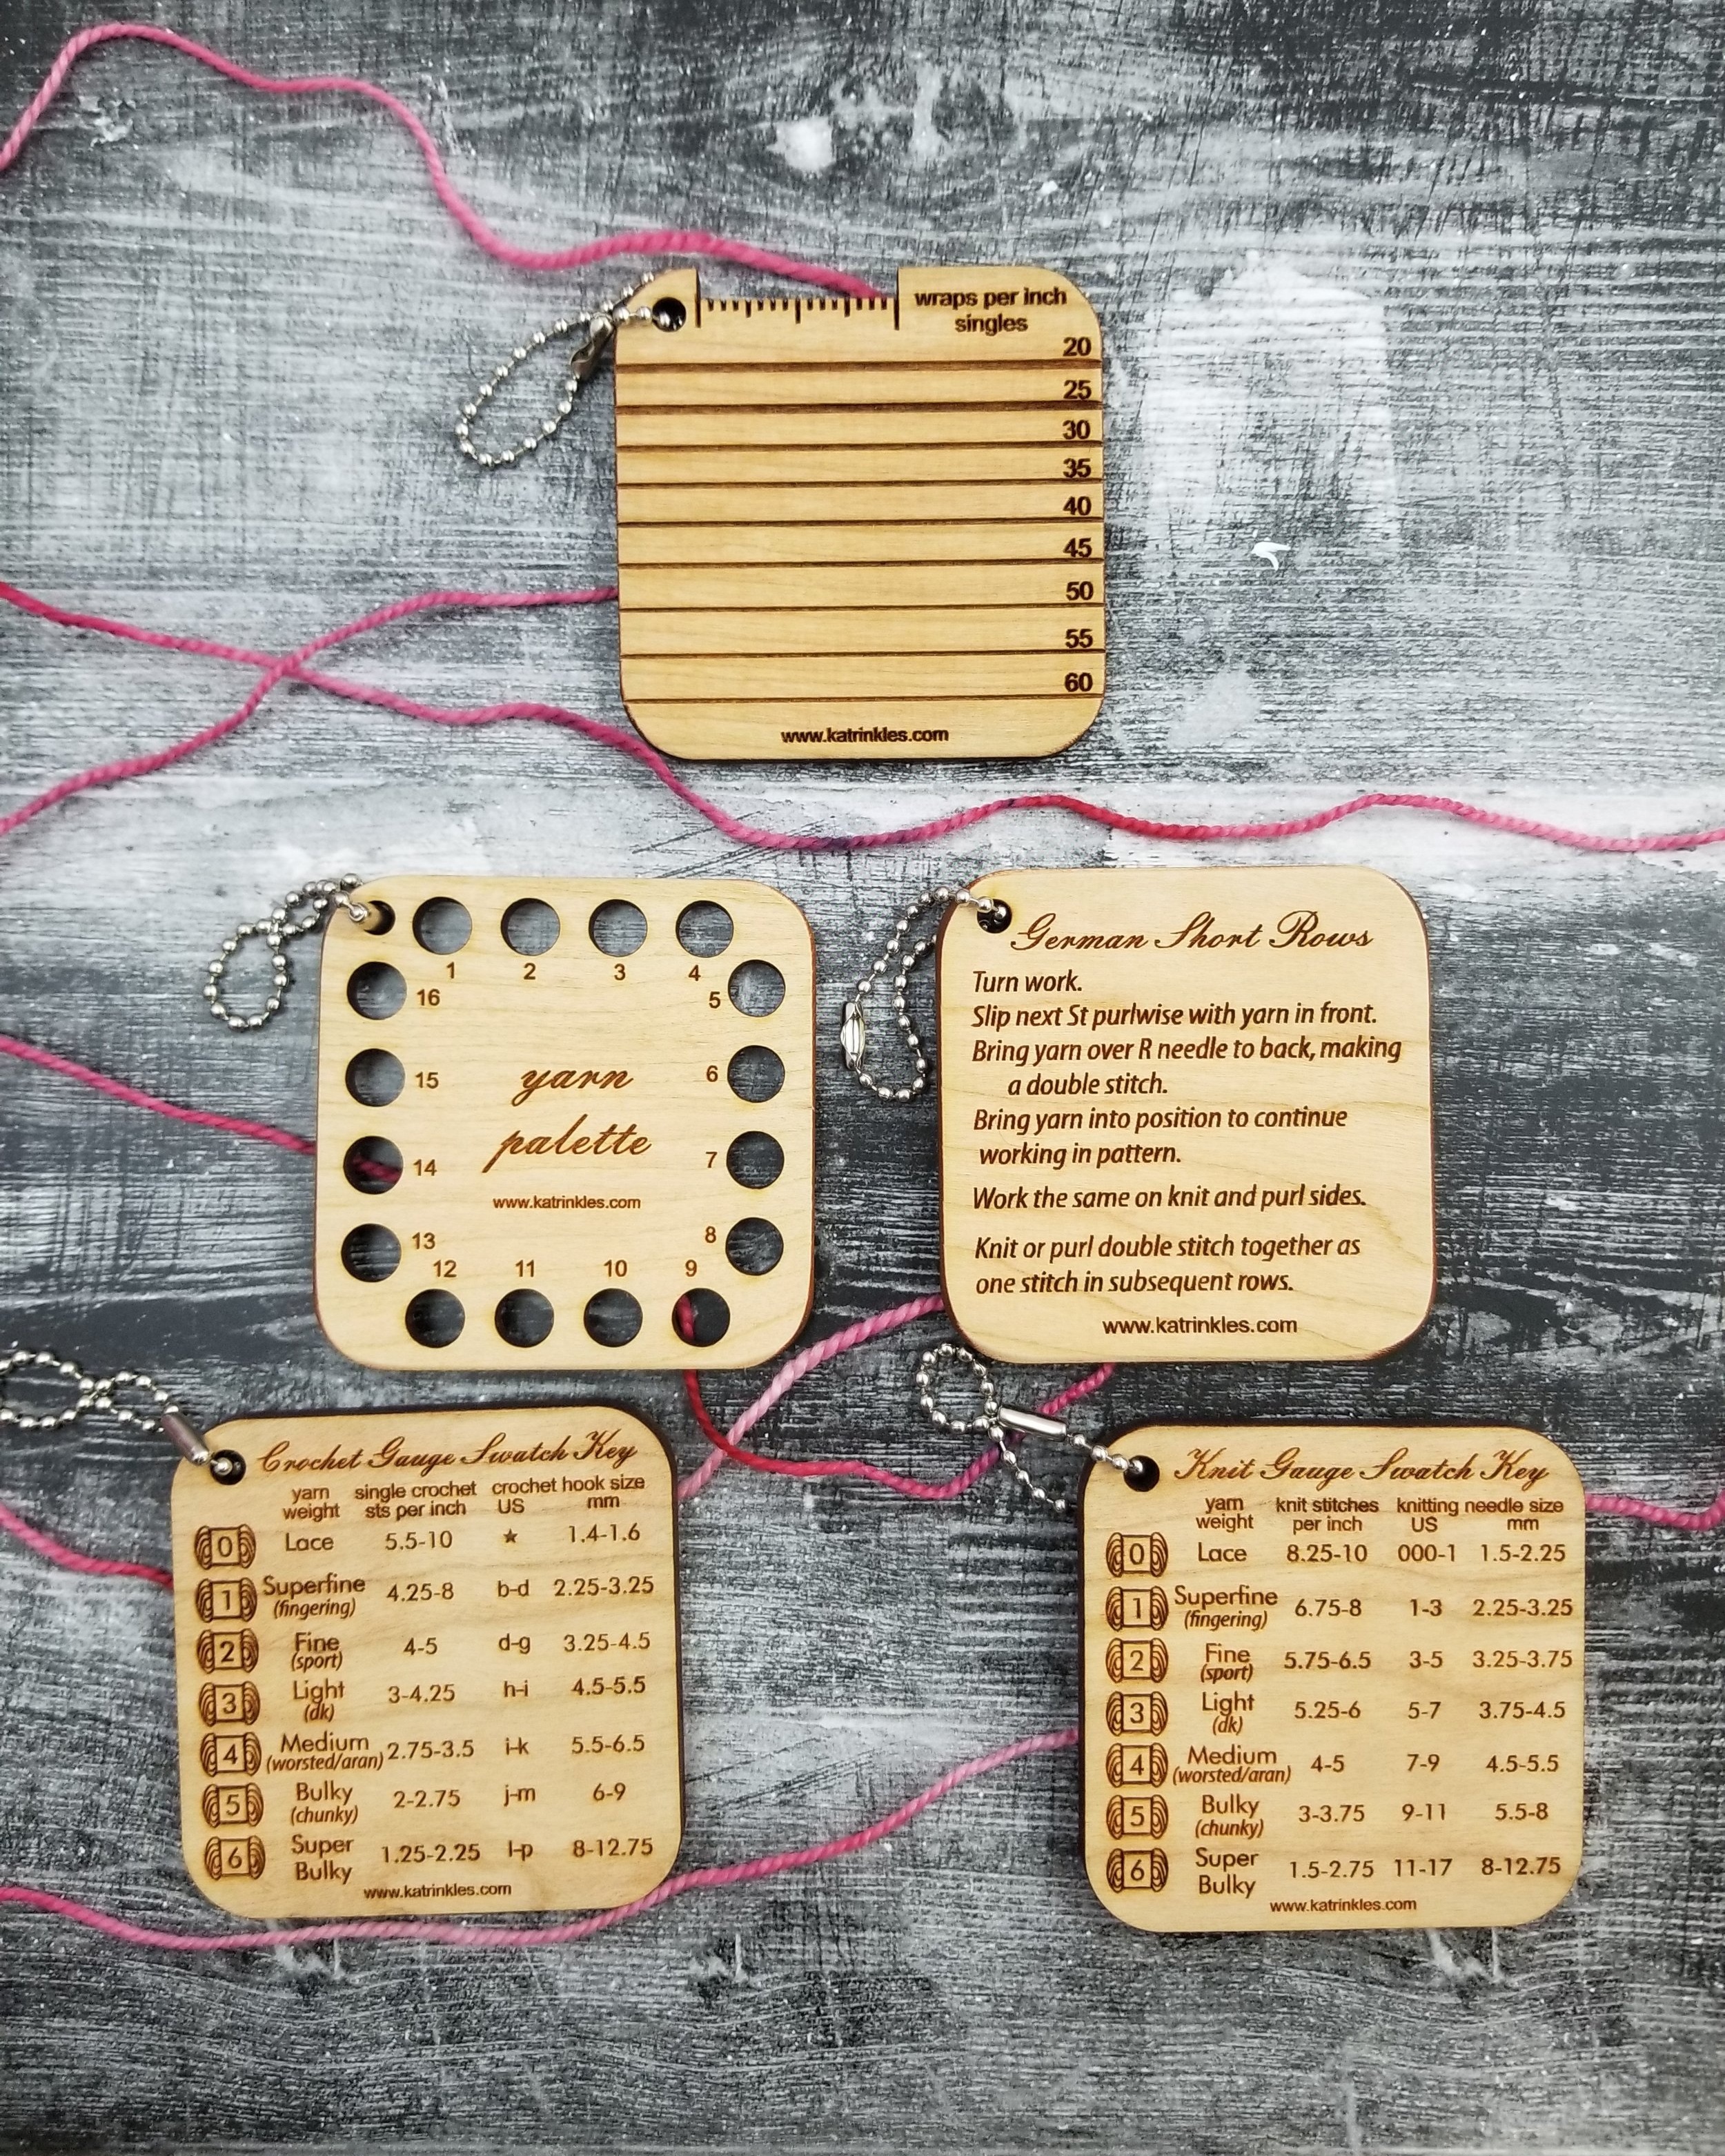 wraps per inch
singles
20
25
30
35
40
45
50
55
60
www.katrinkles.com
1 2 3 4
16 5
15 6
14 7
13 8
12 11 10 9
yarn
palette
www.katrinkles.com
German Short Rows
Turn work.
Slip next St purlwise with yarn in front.
Bring yarn over R needle to back, making
a double stitch.
Bring yarn into position to continue
working in pattern.
Work the same on knit and purl sides.
Knit or purl double stitch together as
one stitch in subsequent rows.
www.katrinkles.com
Crochet Gauge Swatch Key
yarn single crochet crochet hook size
weight sts per inch US mm
0 Lace 5.5-10 ★ 1.4-1.6
1 Superfine 4.25-8 b-d 2.25-3.25
(fingering)
2 Fine 4-5 d-g 3.25-4.5
(sport)
3 Light 3-4.25 h-i 4.5-5.5
(dk)
4 Medium 2.75-3.5 i-k 5.5-6.5
(worsted/aran)
5 Bulky 2-2.75 j-m 6-9
(chunky)
6 Super 1.25-2.25 l-p 8-12.75
Bulky
www.katrinkles.com
Knit Gauge Swatch Key
yarn knit stitches knitting needle size
weight per inch US mm
0 Lace 8.25-10 000-1 1.5-2.25
1 Superfine 6.75-8 1-3 2.25-3.25
(fingering)
2 Fine 5.75-6.5 3-5 3.25-3.75
(sport)
3 Light 5.25-6 5-7 3.75-4.5
(dk)
4 Medium 4-5 7-9 4.5-5.5
(worsted/aran)
5 Bulky 3-3.75 9-11 5.5-8
(chunky)
6 Super 1.5-2.75 11-17 8-12.75
Bulky
www.katrinkles.com